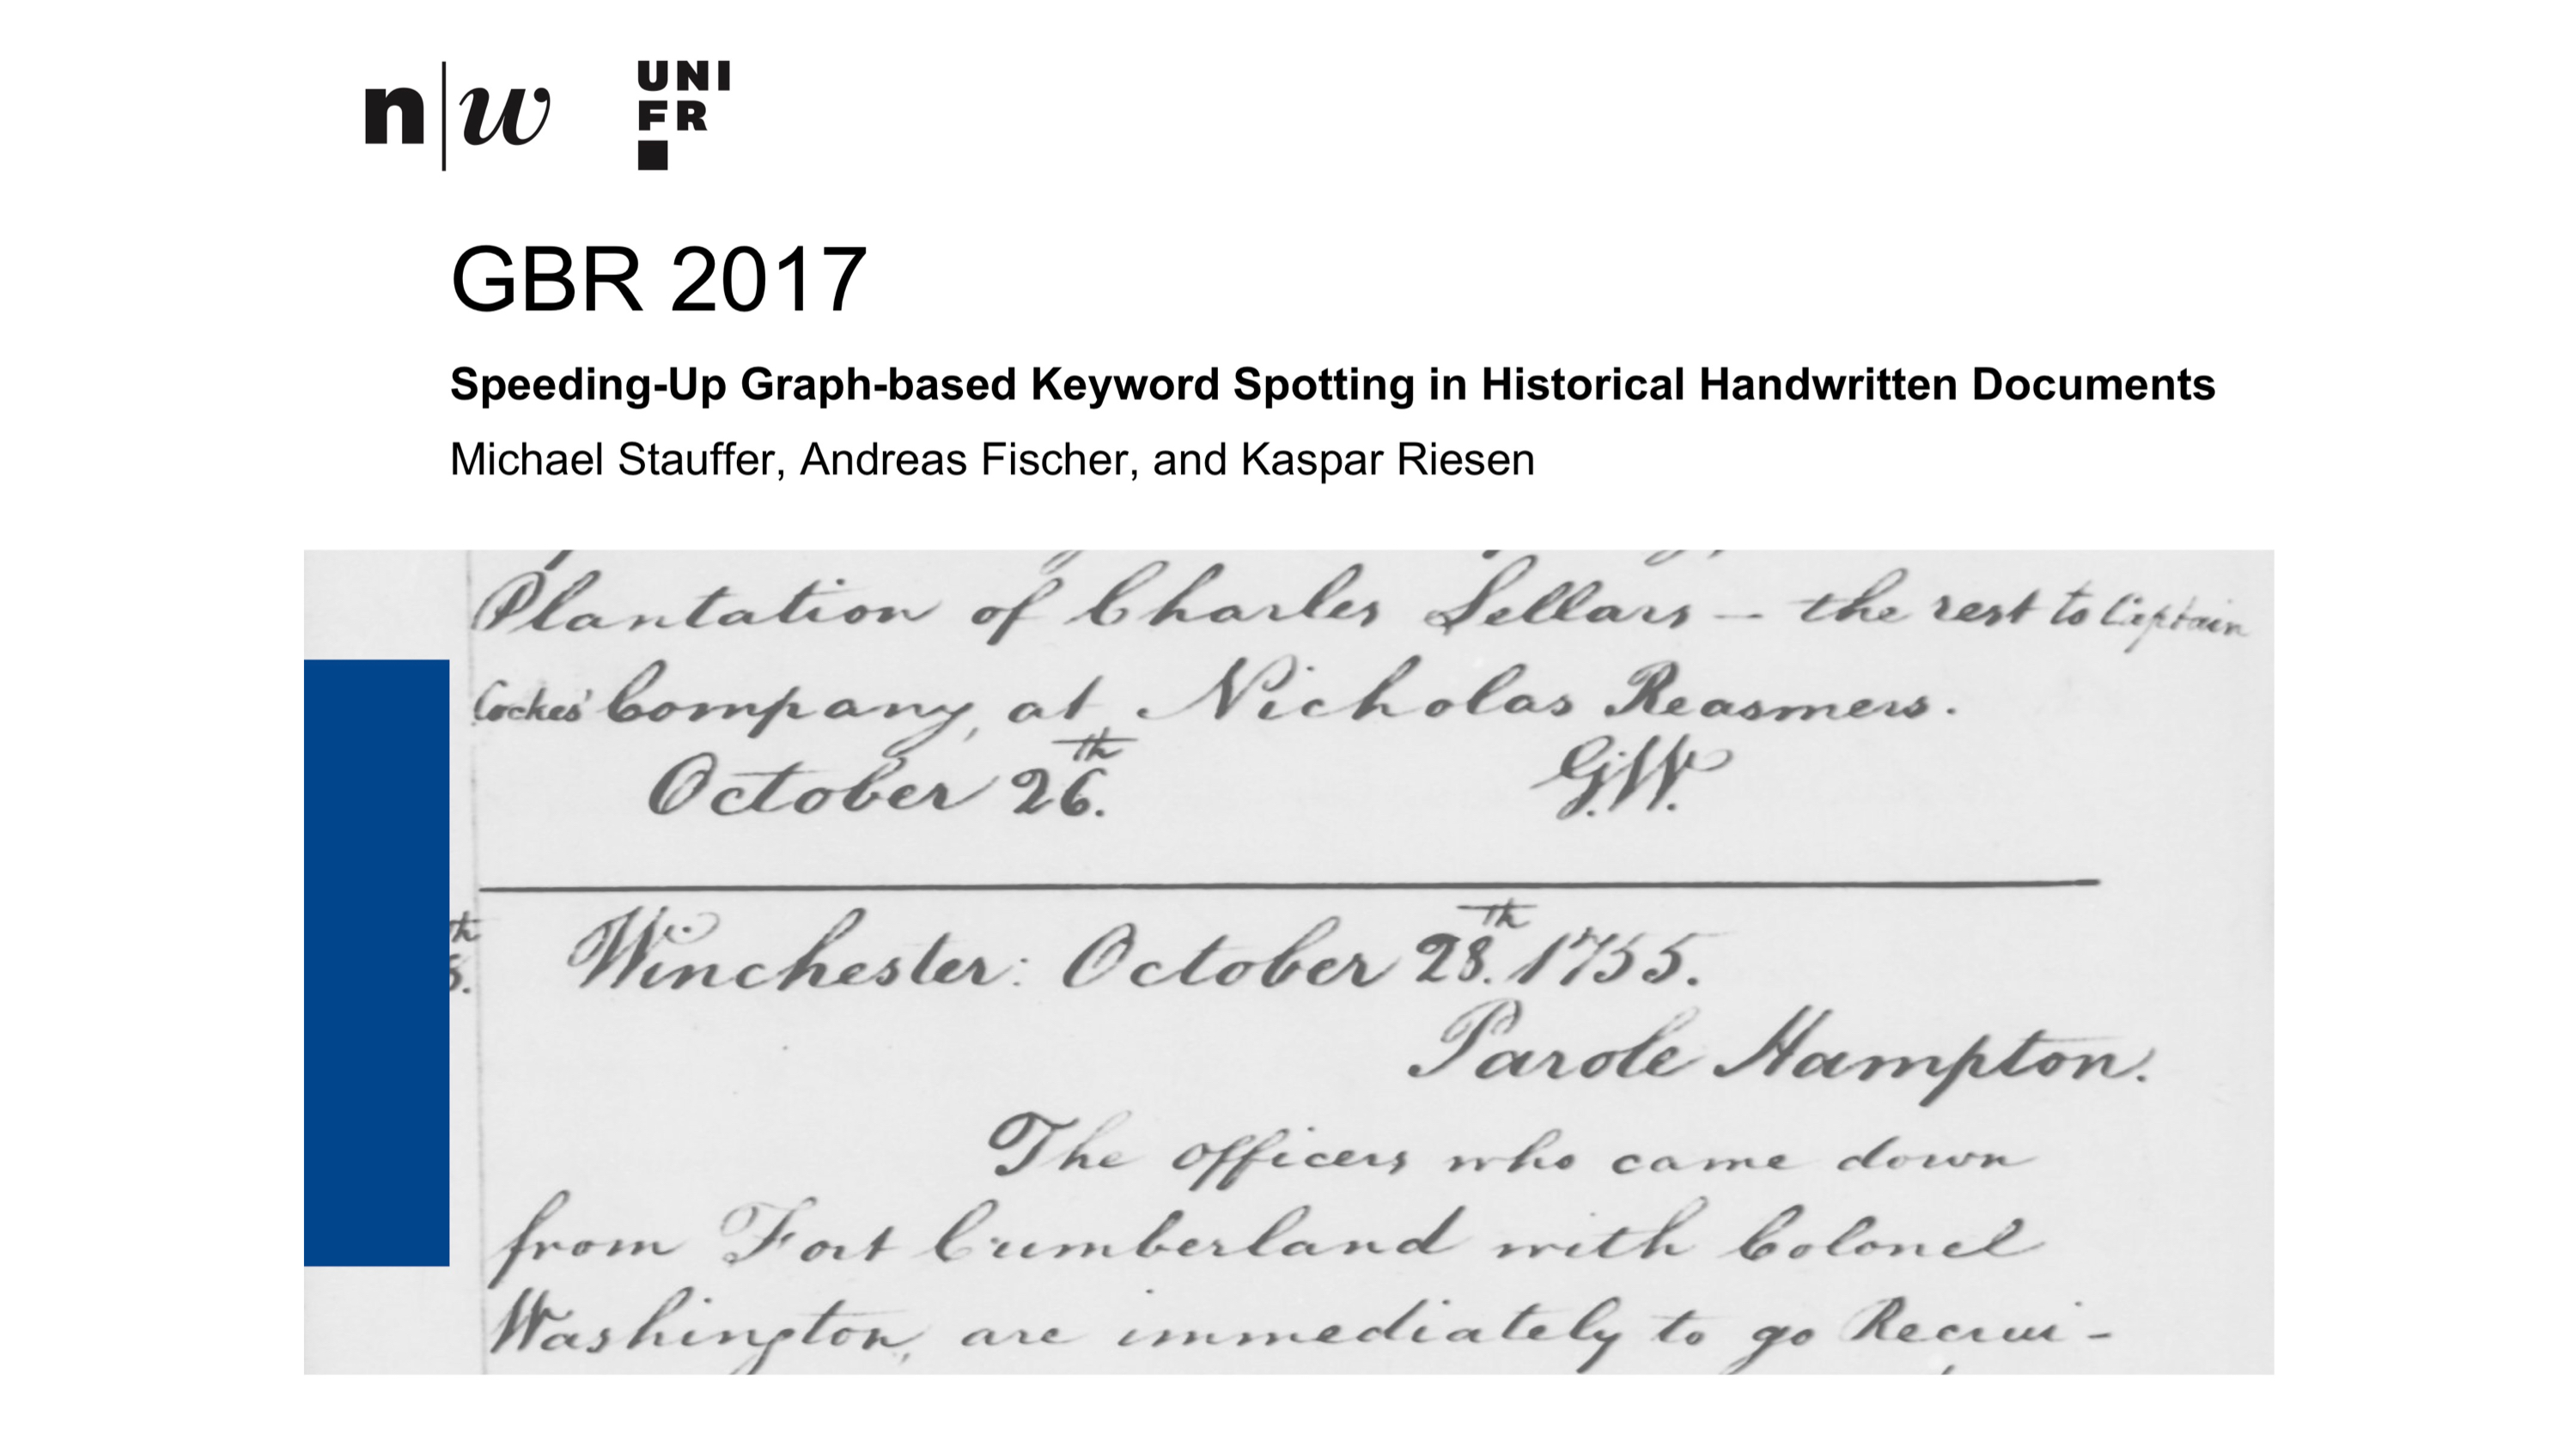 n|w
UNI
FR
GBR 2017
Speeding-Up Graph-based Keyword Spotting in Historical Handwritten Documents
Michael Stauffer, Andreas Fischer, and Kaspar Riesen
Plantation of Charles Sellars – the rest to Captain
Cockes' Company, at Nicholas Reasmers.
October 26.th G.W.
th
8. Winchester: October 28.th 1755.
Parole Hampton.
The officers who came down
from Fort Cumberland with Colonel
Washington, are immediately to go Recrui-